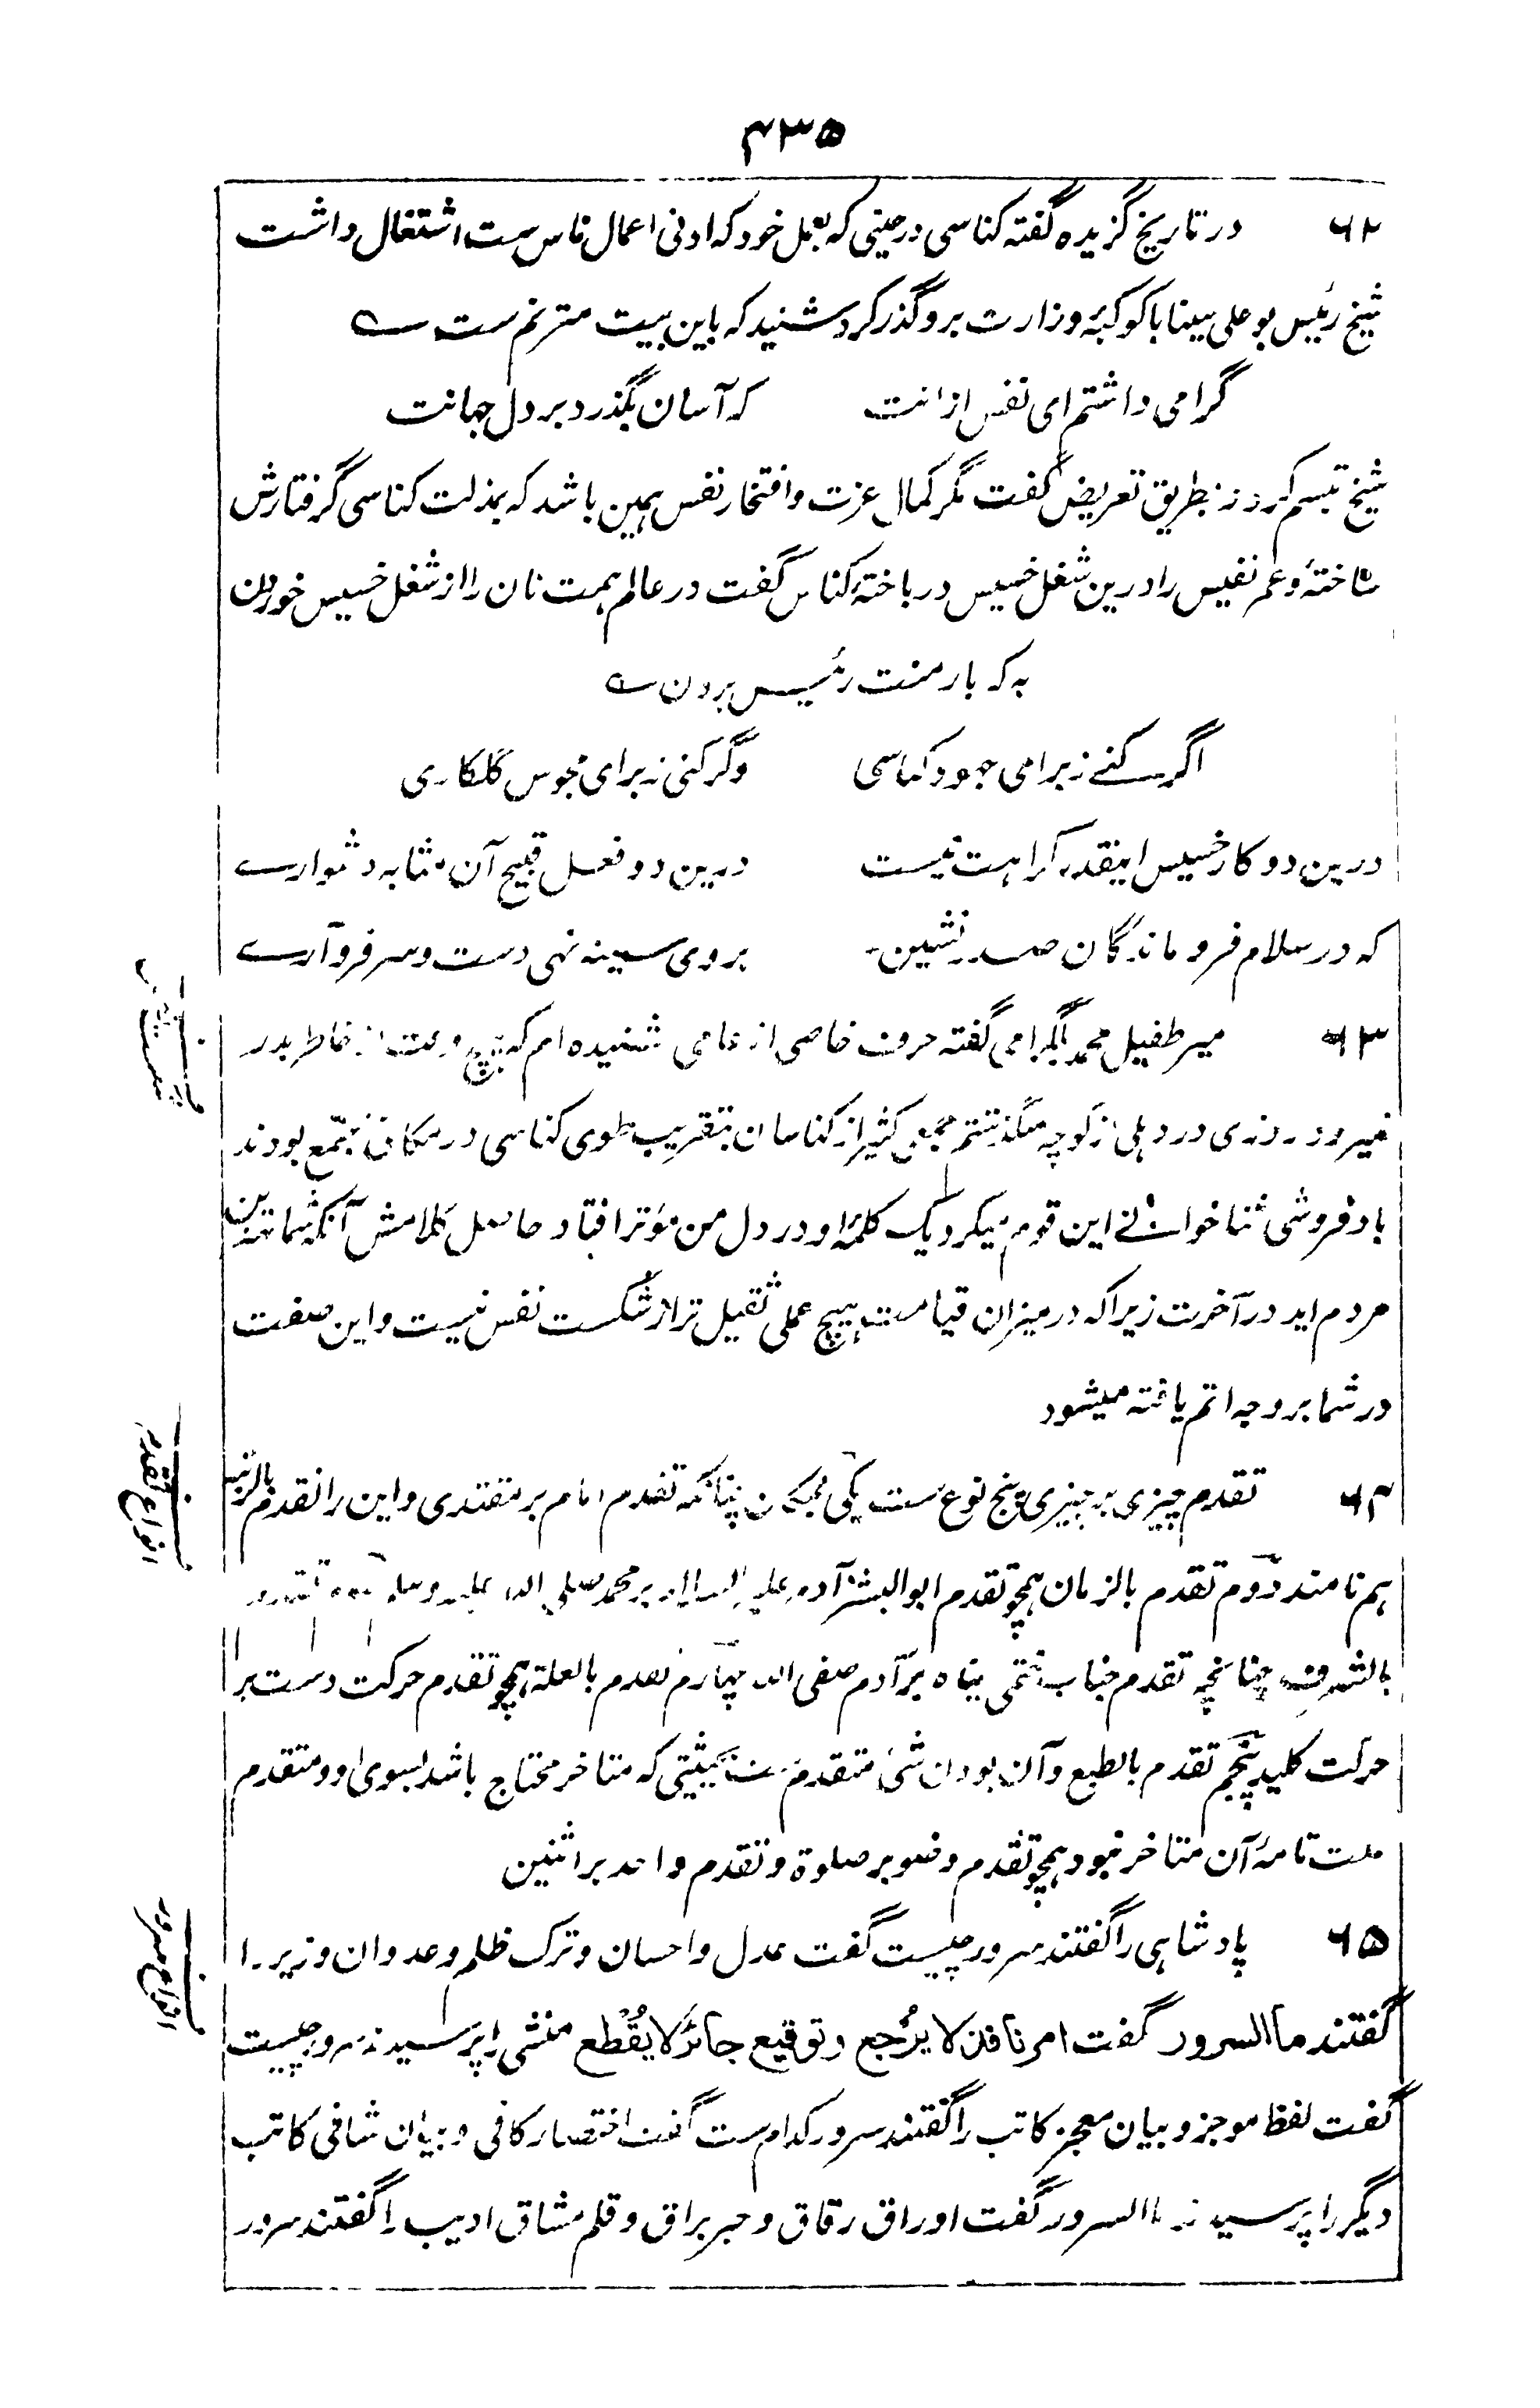 ۴۳۵
۶۲ در تاریخ گزیده گفته کناسی در حینی که بعمل خود که ادنی اعمال ناس ست اشتغال داشت
شیخ رئیس بو علی سینا با کوکبهٔ وزارت برو گذر کرد شنید که باین بیت مترنم ست ے
گرامی داشتم ای نفس از انت که آسان بگذرد بر دل جهانت
شیخ تبسم کرد و بطریق تعریض گفت مگر کمال عزت و افتخار نفس همین باشد که بمذلت کناسی گرفتارش
ساختهٔ و عمر نفیس را درین شغل خسیس در باختهٔ کناس گفت در عالم همت نان را از شغل خسیس خوردن
به که بار منت رئیس بردن ے
اگر کنے ز برای جهود کناسی وگر کنی ز برای مجوس گلکاری
درین دو کار خسیس اینقدر کراهت نیست درین دو فعل قبیح آن مثابه دشوارے
که در سلام فرو ماندگان صدر نشین بروی سینه نهی دست و سر فرو آرے
۶۳ میر طفیل محمد بلگرامی گفته حرف خاصی از عامی شنیده ام که هیچ وقت از خاطر بدر
نمیرود روزی در دهلی از کوچه میگذشتم مجمعی کثیر از کناسان بتقریب طوی کناسی در مکانی مجتمع بودند
باد فروشی ثنا خوانے این قوم میکرد یک کلمهٔ او در دل من مؤثر افتاد حاصل کلامش آنکه شما بهترین
مردم اید در آخرت زیرا که در میزان قیامت هیچ عملی ثقیل تر از شکست نفس نیست و این صفت
در شما بر وجه اتم یافته میشود
انواع تقدم
۶۴ تقدم چیزی بر چیزی پنج نوع ست یکی بمکان چنانکه تقدم امام بر مقتدی و این را تقدم بالرتبه
هم نامند دوم تقدم بالزمان همچو تقدم ابو البشر آدم علیه السلام بر محمد صلی الله علیه وسلم سوم تقدم
بالشرف چنانچه تقدم جناب ختمی پناه بر آدم صفی الله چهارم تقدم بالعلة همچو تقدم حرکت دست بر
حرکت کلید پنجم تقدم بالطبع و آن بودن شئ متقدم ست بحیثیتی که متاخر محتاج باشد بسوی او و متقدم
علت تامهٔ آن متاخر نبود همچو تقدم وضو بر صلوة و تقدم واحد بر اثنین
انواع سرور
۶۵ پادشاهی را گفتند سرور چیست گفت عدل و احسان و ترک ظلم و عدوان وزیر را
گفتند ما السرور گفت امر نافذ لا یُرْجع و توقیع جائز لا یُقْطع منشی را پرسیدند سرور چیست
گفت لفظ موجز و بیان معجز کاتب را گفتند سرور کدام ست گفت اختصار کافی و بیان شافی کاتب
دیگر را پرسیدند ما السرور گفت اوراق رقاق و حبر براق و قلم مشاق ادیب را گفتند سرور